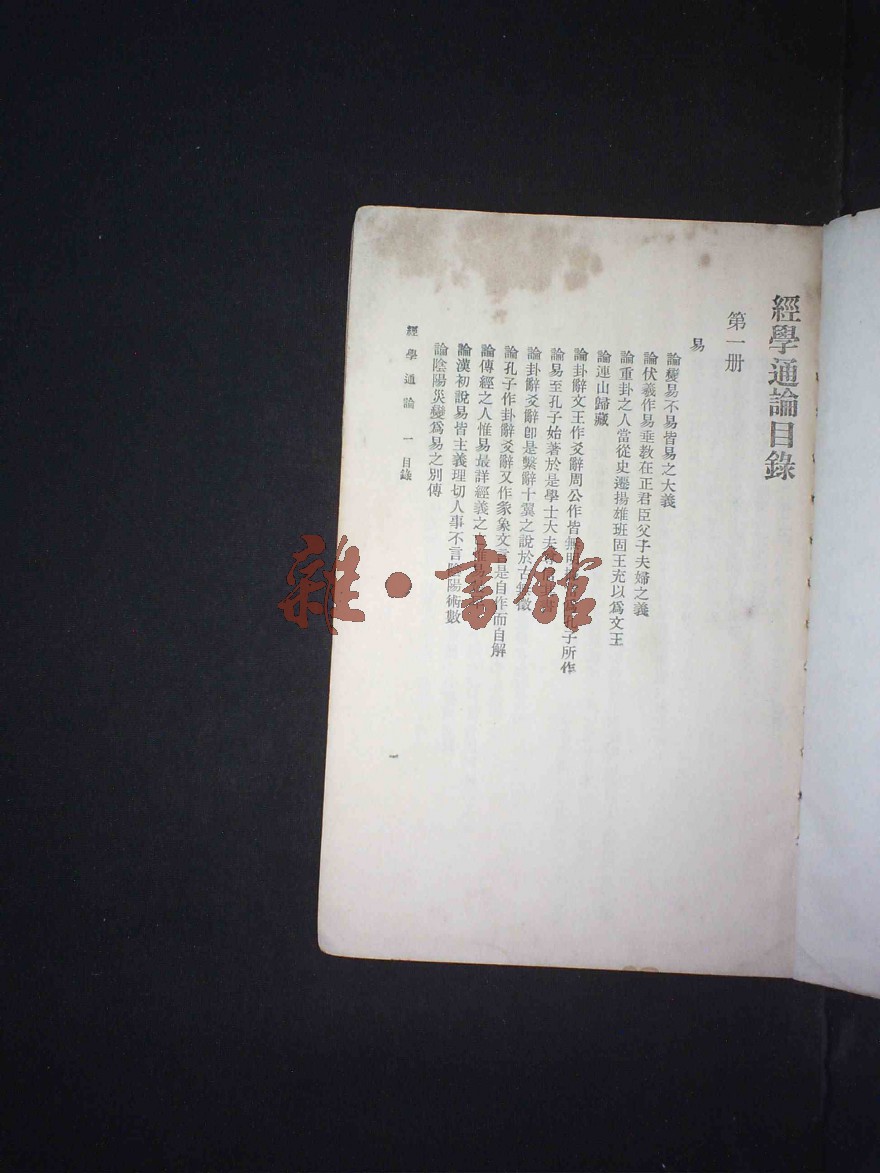 經學通論目錄
第一册
易
論變易不易皆易之大義
論伏羲作易垂教在正君臣父子夫婦之義
論重卦之人當從史遷揚雄班固王充以爲文王
論連山歸藏
論卦辭文王作爻辭周公作皆無 子所作
論易至孔子始著於是學士大夫
論卦辭爻辭卽是繫辭十翼之說於古無徵
論孔子作卦辭爻辭又作彖象文言是自作而自解
論傳經之人惟易最詳經義之 惟易
論漢初說易皆主義理切人事不言陰陽術數
論陰陽災變爲易之別傳
經學通論 一 目錄
一
雜·書館